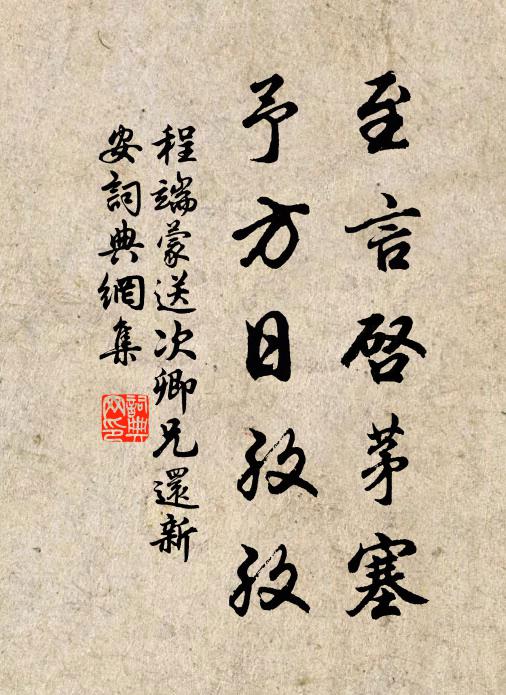 至言啓茅塞
予方日孜孜
程端蒙送次卿兄還新
安詞典網集
詞典網印